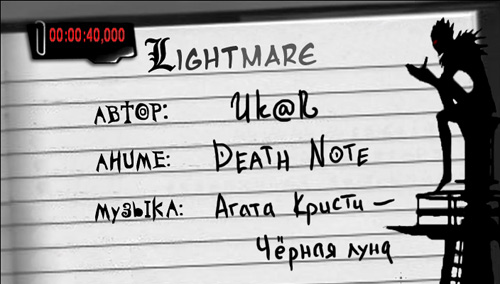 00:00:40,000
LIGHTMARE
АВТОР: Uk@R
АНИМЕ: DEATH NOTE
МУЗЫКА: Агата Кристи –
Чёрная луна